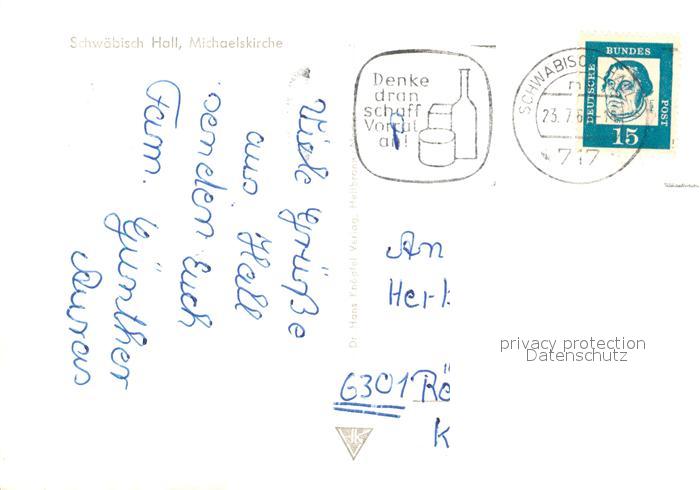 Schwäbisch Hall, Michaelskirche
Viele Grüße
aus Hall
senden Euch
Fam. Günther
Auras
Dr. Hans Knöpfel Verlag, Heilbronn
Denke
dran
schaff
Vorrat
an!
SCHWÄBISC
23.7.6
717
DEUTSCHE
BUNDES
POST
15
An
Her
6301 Rö
K
privacy protection
Datenschutz